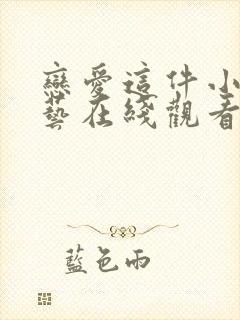 戀愛這件小
藝在綫觀看
藍色雨